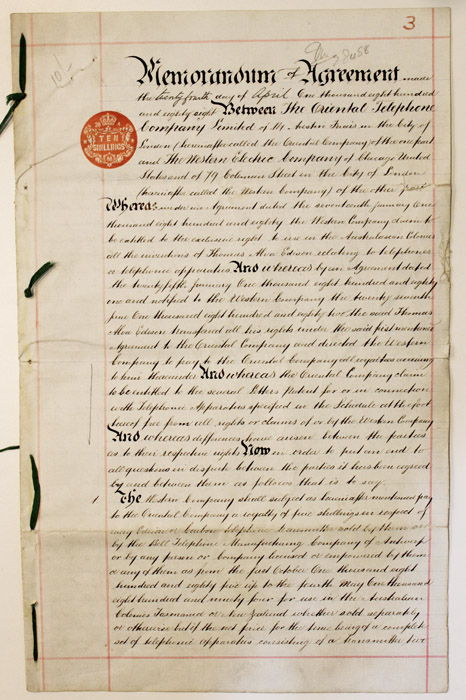 3
10/-
Memorandum of Agreement made
the twenty fourth day of April One thousand eight hundred
and eighty eight Between The Oriental Telephone
Company Limited of 14 Austin Friars in the City of
London (hereinafter called the Oriental Company) of the one part
and The Western Electric Company of Chicago United
States and of 79 Coleman Street in the City of London
(hereinafter called the Western Company) of the other part
TEN
SHILLINGS
Whereas under an Agreement dated the seventeenth January One
thousand eight hundred and eighty the Western Company claim to
be entitled to the exclusive right to use in the Australasian Colonies
all the inventions of Thomas Alva Edison relating to telephones
or telephonic apparatus And whereas by an Agreement dated
the twenty fifth January One thousand eight hundred and eighty
one and notified to the Western Company the twenty seventh
June One thousand eight hundred and eighty two the said Thomas
Alva Edison transferred all his rights under the said first mentioned
Agreement to the Oriental Company and directed the Western
Company to pay to the Oriental Company all royalties accruing
to him thereunder And whereas the Oriental Company claim
to be entitled to the several Letters Patent for or in connection
with Telephonic Apparatus specified in the Schedule at the foot
hereof free from all rights or claims of or by the Western Company
And whereas differences have arisen between the parties
as to their respective rights Now in order to put an end to
all questions in dispute between the parties it has been agreed
by and between them as follows that is to say:
1 The Western Company shall subject as hereinafter mentioned pay
to the Oriental Company a royalty of five shillings in respect of
every Edison or Carbon telephone transmitter sold by them or
by the Bell Telephone Manufacturing Company of Antwerp
or by any person or Company licensed or empowered by them
or any of them as from the first October One thousand eight
hundred and eighty five up to the fourth May One thousand
eight hundred and ninety four for use in the Australian
Colonies Tasmania or New Zealand whether sold separately
or otherwise but if the net price for the time being of a complete
set of telephonic apparatus consisting of a transmitter two